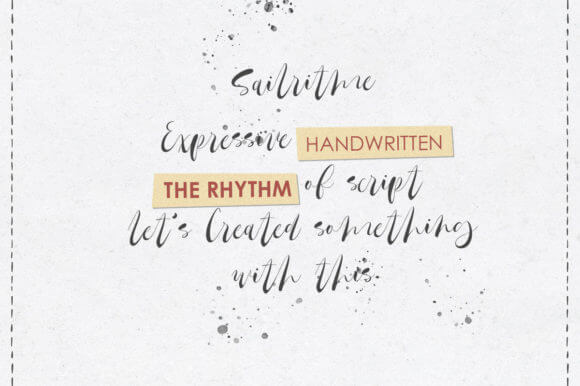 Sailritme
Expressive HANDWRITTEN
THE RHYTHM of script
let's Created something
with this